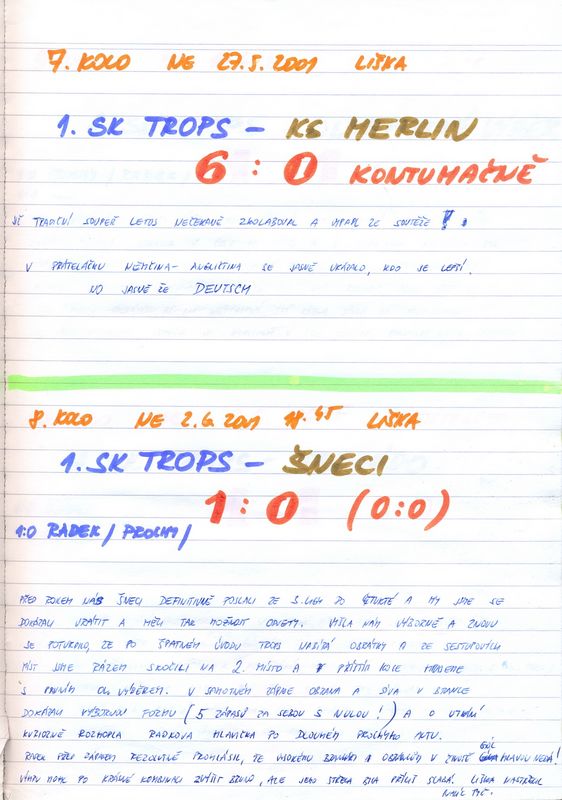 7. KOLO NE 27.5.2001 LIŠKA
1. SK TROPS – KS MERLIN
6 : 0 KONTUMAČNĚ
TRADIČNÍ SOUPEŘ LETOS NEČEKANĚ ZKOLABOVAL A VYPADL ZE SOUTĚŽE !
V PŘÁTELÁČKU NĚMČINA - ANGLIČTINA SE JASNĚ UKÁZALO, KDO JE LEPŠÍ.
NO JASNĚ ŽE DEUTSCH
8. KOLO NE 2.6.2001 18.45 LIŠKA
1. SK TROPS – ŠNECI
1 : 0 (0:0)
1:0 RADEK / PROCHY /
PŘED ROKEM NÁS ŠNECI DEFINITIVNĚ POSLALI ZE 3. LIGY DO ČTVRTÉ A MY JSME SE
DOKÁZALI VRÁTIT A MĚLI TAK MOŽNOST ODVETY. VYŠLA NÁM VÝBORNĚ A ZNOVU
SE POTVRDILO, ŽE PO ŠPATNÉM ÚVODU TROPS NABÍRÁ OBRÁTKY A ZE SESTUPOVÝCH
MÍST JSME RÁZEM SKOČILI NA 2. MÍSTO A V PŘÍŠTÍM KOLE HRAJEME
S PRVNÍM VÝBĚREM. V SAMOTNÉM ZÁPASE OBRANA A SÍVA V BRANCE
DOKÁZALI VÝBORNOU FORMU (5 ZÁPASŮ ZA SEBOU S NULOU!) A O UTKÁNÍ
KURIÓZNĚ ROZHODLA RADKOVA HLAVIČKA PO DLOUHÉM PROCHYHO AUTU.
RADEK PŘED ZÁPASEM REZOLUTNĚ PROHLÁSIL, ŽE VYSOKÉMU BRANKÁŘI A OBRÁNCŮM V ŽIVOTĚ GÓL HLAVOU NEDÁ!
MOHL PO KRÁSNÉ KOMBINACI ZVÝŠIT BRUNO, ALE JEHO STŘELA BYLA PŘÍLIŠ SLABÁ. LIŠKA NASTŘELIL
NAVÍC TYČ.